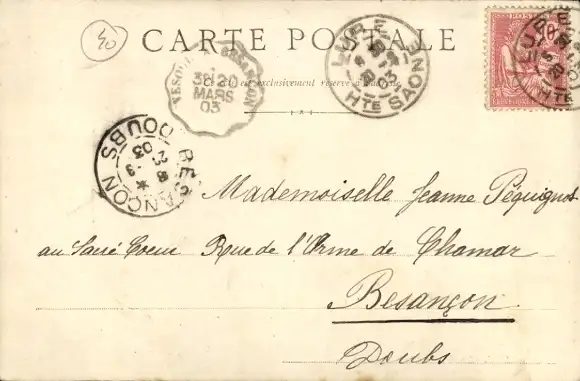 40
CARTE POSTALE
LURE
20
03
HTE SAÔNE
VESOUL BESANÇON
3E 20
MARS
03
exclusivement réservé à l'adresse
BESANÇON
DOUBS
03
Mademoiselle Jeanne Péquignot
au Sacré Coeur Rue de l'Orme de Chamar
Besançon
Doubs